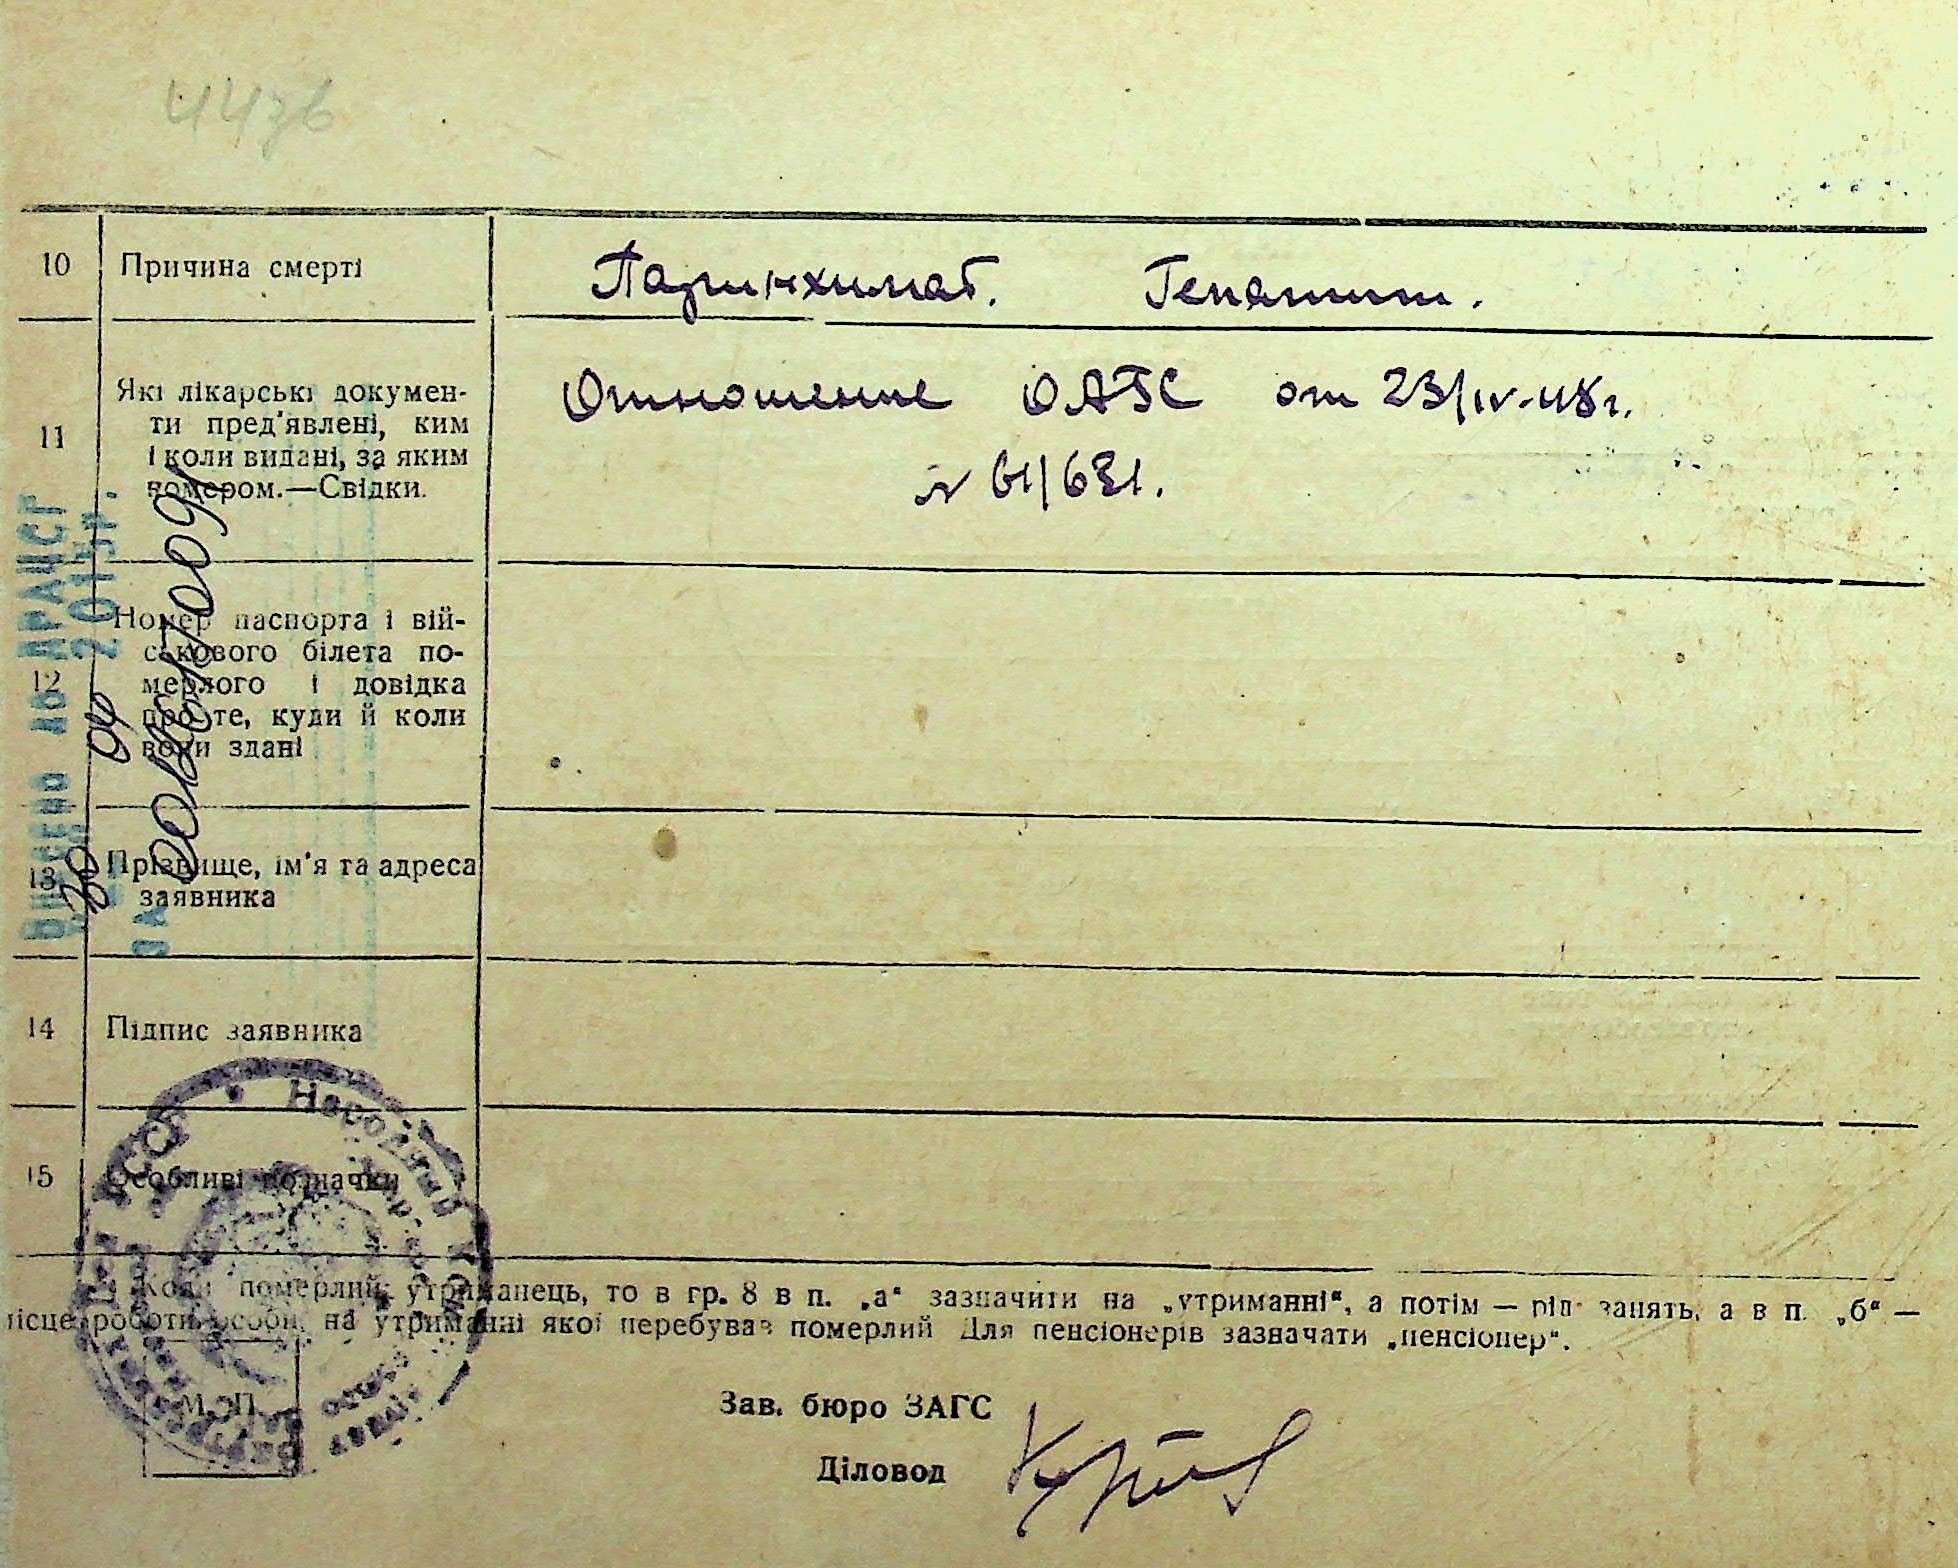 10 Причина смерті Паринхимат. Гепатит.
11 Які лікарські докумен-
ти пред'явлені, ким
і коли видані, за яким
номером.—Свідки.
Отношение ОАГС от 23/IV-48г.
№ 61/681.
12 Номер паспорта і вій-
ськового білета по-
мерлого і довідка
про те, куди й коли
вони здані
13 Прізвище, ім'я та адреса
заявника
14 Підпис заявника
15 Особливі позначки
Коли померлий утриманець, то в гр. 8 в п. „а“ зазначити на „утриманні“, а потім — рід занять, а в п. „б“ —
місце роботи особи, на утриманні якої перебував померлий Для пенсіонерів зазначати „пенсіонер“.
М. П.
Зав. бюро ЗАГС
Діловод
ДРАЦСГ